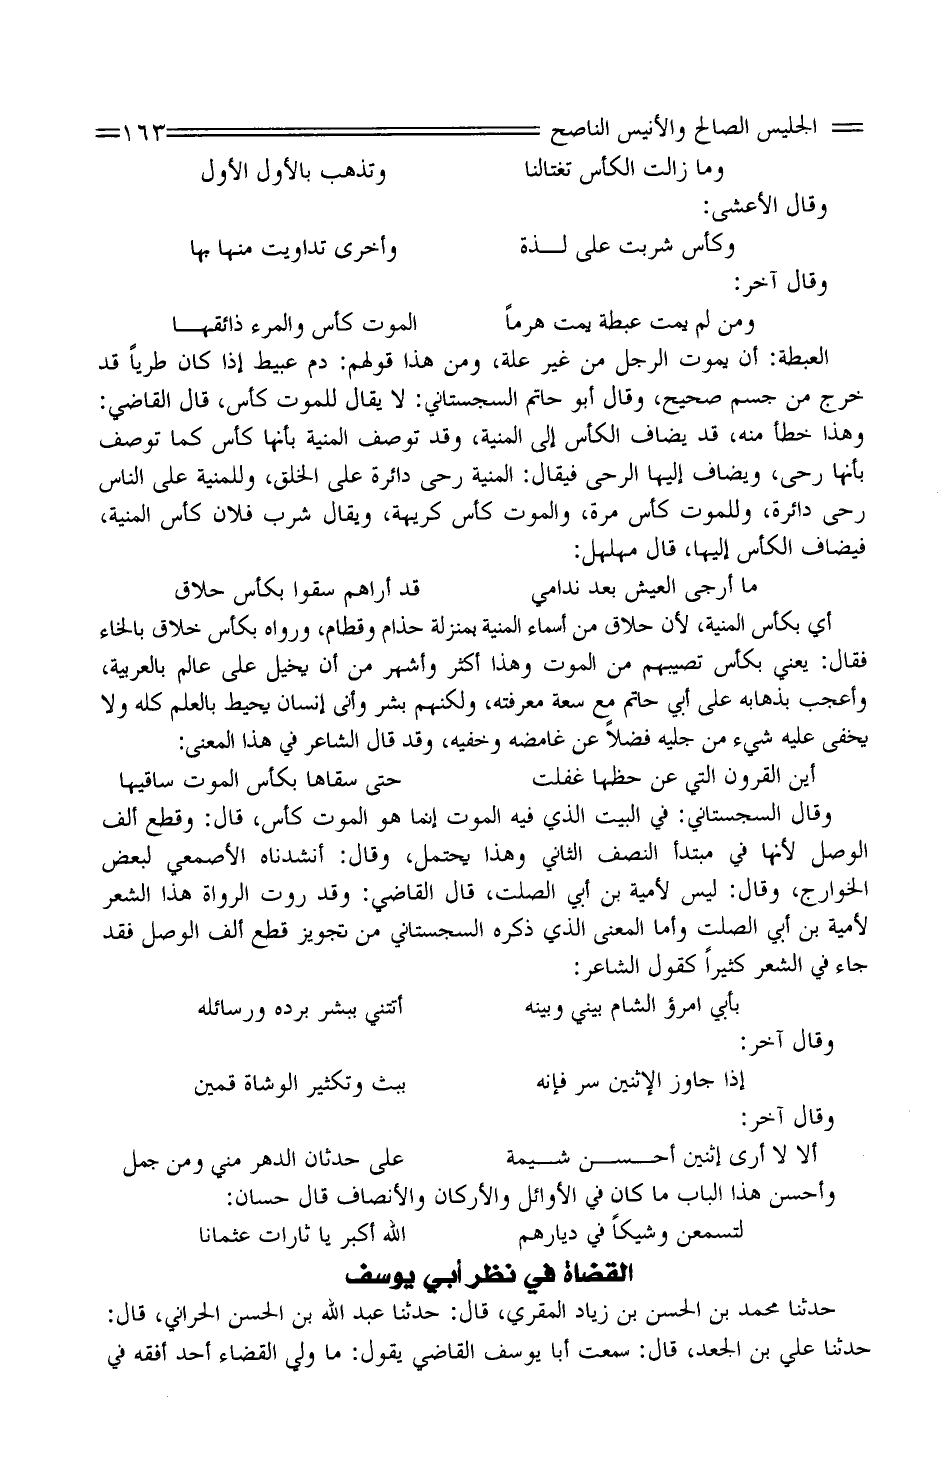 الجليس الصالح والأنيس الناصح ١٦٣
وما زالت الكأس تغتالنا وتذهب بالأول الأول
وقال الأعشى:
وكأس شربت على لـــذة وأخرى تداويت منها بها
وقال آخر:
ومن لم يمت عبطة يمت هرماً الموت كأس والمرء ذائقهـــا
العبطة: أن يموت الرجل من غير علة، ومن هذا قولهم: دم عبيط إذا كان طرياً قد
خرج من جسم صحيح، وقال أبو حاتم السجستاني: لا يقال للموت كأس، قال القاضي:
وهذا خطأ منه، قد يضاف الكأس إلى المنية، وقد توصف المنية بأنها كأس كما توصف
بأنها رحى، ويضاف إليها الرحى فيقال: المنية رحى دائرة على الخلق، وللمنية على الناس
رحى دائرة، وللموت كأس مرة، والموت كأس كريهة، ويقال شرب فلان كأس المنية،
فيضاف الكأس إليها، قال مهلهل:
ما أرجى العيش بعد ندامي قد أراهم سقوا بكأس حلاق
أي بكأس المنية، لأن حلاق من أسماء المنية بمنزلة حذام وقطام، ورواه بكأس خلاق بالخاء
فقال: يعني بكأس تصيبهم من الموت وهذا أكثر وأشهر من أن يخيل على عالم بالعربية،
وأعجب بذهابه على أبي حاتم مع سعة معرفته، ولكنهم بشر وأنى إنسان يحيط بالعلم كله ولا
يخفى عليه شيء من جليه فضلاً عن غامضه وخفيه، وقد قال الشاعر في هذا المعنى:
أين القرون التي عن حظها غفلت حتى سقاها بكأس الموت ساقيها
وقال السجستاني: في البيت الذي فيه الموت إنما هو الموت كأس، قال: وقطع ألف
الوصل لأنها في مبتدأ النصف الثاني وهذا يحتمل، وقال: أنشدناه الأصمعي لبعض
الخوارج، وقال: ليس لأمية بن أبي الصلت، قال القاضي: وقد روت الرواة هذا الشعر
لأمية بن أبي الصلت وأما المعنى الذي ذكره السجستاني من تجويز قطع ألف الوصل فقد
جاء في الشعر كثيراً كقول الشاعر:
بأبي امرؤ الشام بيني وبينه أتتني ببشر برده ورسائله
وقال آخر:
إذا جاوز الإثنين سر فإنه ببث وتكثير الوشاة قمين
وقال آخر:
ألا لا أرى إثنين أحـــســـن شـــيمة على حدثان الدهر مني ومن جمل
وأحسن هذا الباب ما كان في الأوائل والأركان والأنصاف قال حسان:
لتسمعن وشيكاً في ديارهم الله أكبر يا ثارات عثمانا
القضاة في نظر أبي يوسف
حدثنا محمد بن الحسن بن زياد المقري، قال: حدثنا عبد الله بن الحسن الحراني، قال:
حدثنا علي بن الجعد، قال: سمعت أبا يوسف القاضي يقول: ما ولي القضاء أحد أفقه في